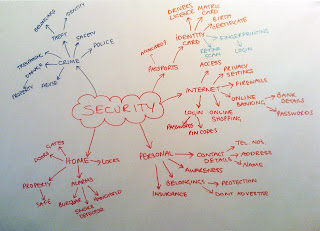 BURGLARY
IDENTITY
THEFT
SAFETY
POLICE
CRIME
DAMAGE
PROPERTY
ABUSE
DRIVERS LICENCE
MATRIC CARD
BIRTH CERTIFICATE
IDENTITY CARD
FINGERPRINTING
RETINA SCAN
LOGIN
PASSPORTS
ACCESS
PRIVACY SETTINGS
INTERNET
FIREWALLS
ONLINE BANKING
BANK DETAILS
PASSWORDS
LOGIN
ONLINE SHOPPING
PASSWORDS
PIN CODES
SECURITY
GATES
DOORS
HOME
LOCKS
PROPERTY
SAFE
ALARMS
BURGLAR
SMOKE DETECTOR
HANDHELD
PERSONAL
CONTACT DETAILS
TEL. NOS.
ADDRESS
NAME
AWARENESS
BELONGINGS
PROTECTION
DON'T ADVERTISE
INSURANCE